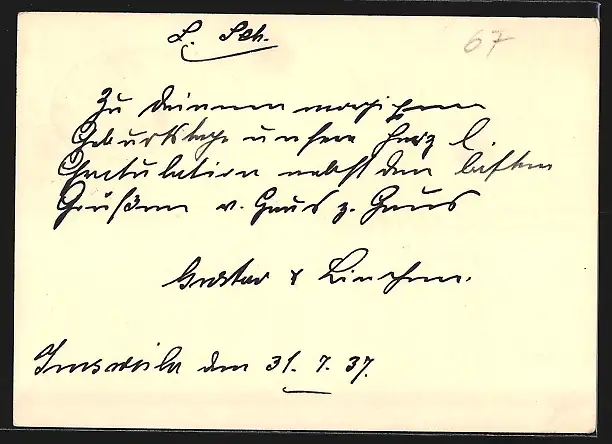 L. Sch.
67
Zu Deinem morgigen
Geburtstage unsere herzl.
Gratulation nebst den besten
Grüßen v. Haus z. Haus
Gustav & Linchen.
Imsweiler den 31. 7. 37.